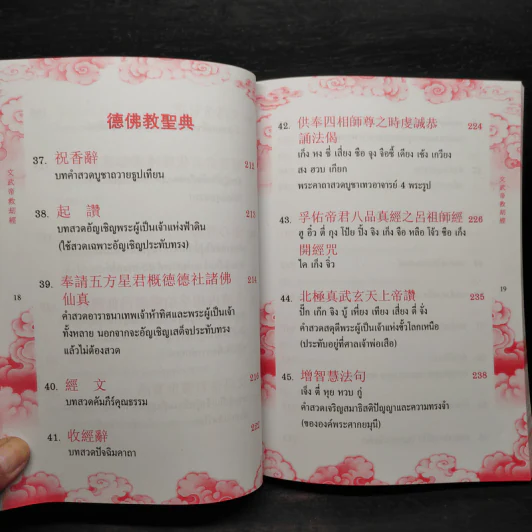 德佛教聖典
37. 祝香辭 212
บทคำสวดบูชาถวายธูปเทียน
38. 起 讚 213
บทสวดอัญเชิญพระผู้เป็นเจ้าแห่งฟ้าดิน
(ใช้สวดเฉพาะอัญเชิญประทับทรง)
39. 奉請五方星君概德德社諸佛 214
仙真
คำสวดอาราธนาเทพเจ้าห้าทิศและพระผู้เป็นเจ้า
ทั้งหลาย นอกจากจะอัญเชิญเสด็จประทับทรง
แล้วไม่ต้องสวด
40. 經 文
บทสวดคัมภีร์คุณธรรม
41. 收經辭 222
บทสวดปัจฉิมคาถา
18
文武帝教經經
42. 供奉四相師尊之時虔誠恭 224
誦法偈
เก็ง พง ซี่ เสี่ยง ซือ จุง จือซี้ เคียง เซ้ง เกวียง
สง ฮวบ เกียก
พระคาถาสวดบูชาเทวอาจารย์ 4 พระรูป
43. 孚佑帝君八品真經之呂祖師經 226
ฮู อิ๋ว ตี่ กุง โป๊ย ปิ้ง จิง เก็ง จือ หลือ โจ้ว ซือ เก็ง
開經咒
ไค เก็ง จิ่ว
44. 北極真武玄天上帝讚 235
ปั๊ก เก๊ก จิง บู้ เหี่ยง เทียง เสี่ยง ตี่ จั่ง
คำสวดสดุดีพระผู้เป็นเจ้าแห่งขั้วโลกเหนือ
(ประทับอยู่ที่ศาลเจ้าพ่อเสือ)
45. 增智慧法句 238
เจ็ง ตี่ หุย หวบ กู่
คำสวดเจริญสมาธิสติปัญญาและความทรงจำ
(ขององค์พระศากยมุนี)
19
文武帝教經經